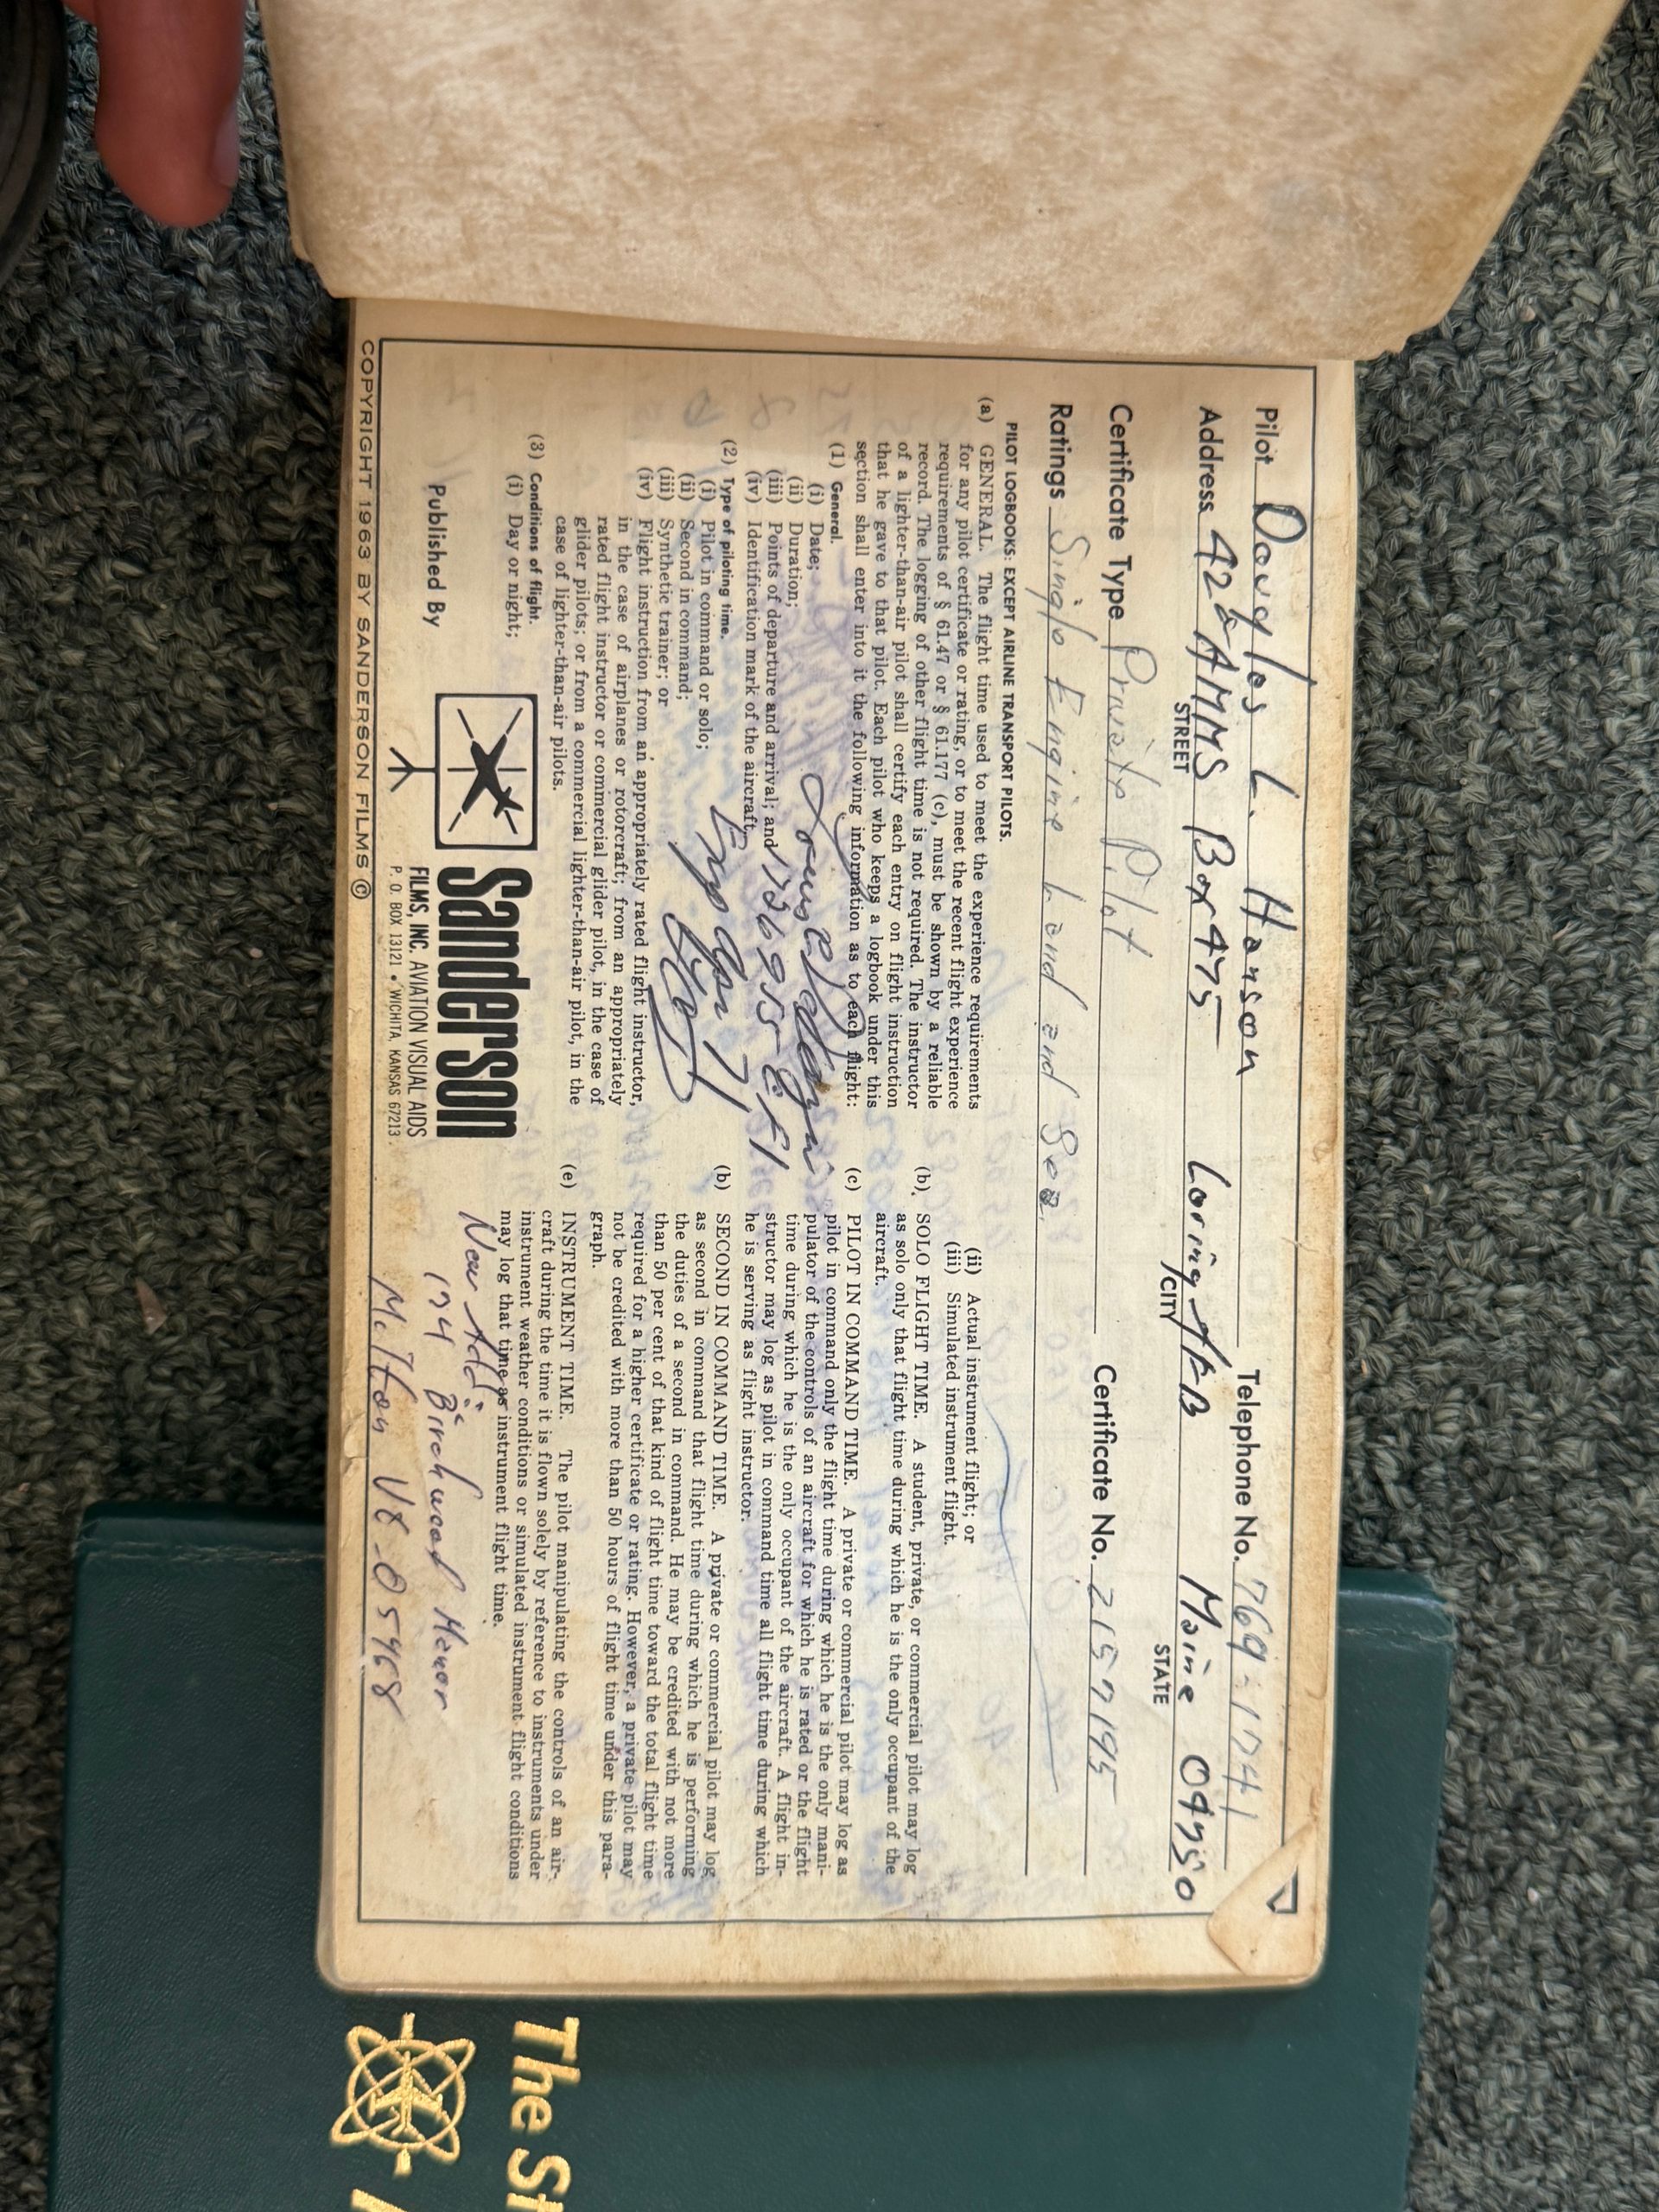 Pilot Douglas L. Hanson Telephone No. 769-1741
Address 42d AMMS Box 475 Loring AFB Maine 04750
STREET CITY STATE
Certificate Type Private Pilot Certificate No. 2157195
Ratings Single Engine Land and Sea
PILOT LOGBOOKS: EXCEPT AIRLINE TRANSPORT PILOTS.
(a) GENERAL. The flight time used to meet the experience requirements
for any pilot certificate or rating, or to meet the recent flight experience
requirements of § 61.47 or § 61.177 (c), must be shown by a reliable
record. The logging of other flight time is not required. The instructor
of a lighter-than-air pilot shall certify each entry on flight instruction
that he gave to that pilot. Each pilot who keeps a logbook under this
section shall enter into it the following information as to each flight:
(1) General.
(i) Date;
(ii) Duration;
(iii) Points of departure and arrival; and
(iv) Identification mark of the aircraft.
(2) Type of piloting time.
(i) Pilot in command or solo;
(ii) Second in command;
(iii) Synthetic trainer; or
(iv) Flight instruction from an appropriately rated flight instructor,
in the case of airplanes or rotorcraft; from an appropriately
rated flight instructor or commercial glider pilot, in the case of
glider pilots; or from a commercial lighter-than-air pilot, in the
case of lighter-than-air pilots.
(3) Conditions of flight.
(i) Day or night;
1726955 CFI
Exp Apr 71
Published By
Sanderson
FILMS, INC. AVIATION VISUAL AIDS
P. O. BOX 13121 • WICHITA, KANSAS 67213
(ii) Actual instrument flight; or
(iii) Simulated instrument flight.
(b) SOLO FLIGHT TIME. A student, private, or commercial pilot may log
as solo only that flight time during which he is the only occupant of the
aircraft.
(c) PILOT IN COMMAND TIME. A private or commercial pilot may log as
pilot in command only the flight time during which he is the only mani-
pulator of the controls of an aircraft for which he is rated or the flight
time during which he is the only occupant of the aircraft. A flight in-
structor may log as pilot in command time all flight time during which
he is serving as flight instructor.
(b) SECOND IN COMMAND TIME. A private or commercial pilot may log
as second in command that flight time during which he is performing
the duties of a second in command. He may be credited with not more
than 50 per cent of that kind of flight time toward the total flight time
required for a higher certificate or rating. However, a private pilot may
not be credited with more than 50 hours of flight time under this para-
graph.
(e) INSTRUMENT TIME. The pilot manipulating the controls of an air-
craft during the time it is flown solely by reference to instruments under
instrument weather conditions or simulated instrument flight conditions
may log that time as instrument flight time.
New Add:
174 Birchwood Manor
Milton Vt. 05468
COPYRIGHT 1963 BY SANDERSON FILMS ©
The St